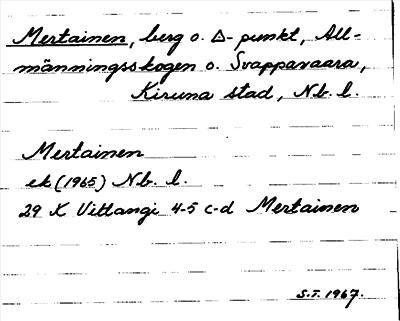 Mertainen, berg o. Δ-punkt, All-
männingsskogen o. Svappavaara,
Kiruna stad, Nb. l.
Mertainen
ek (1965) Nb. l.
29 K Vittangi 4-5 c-d Mertainen
S.T. 1967.